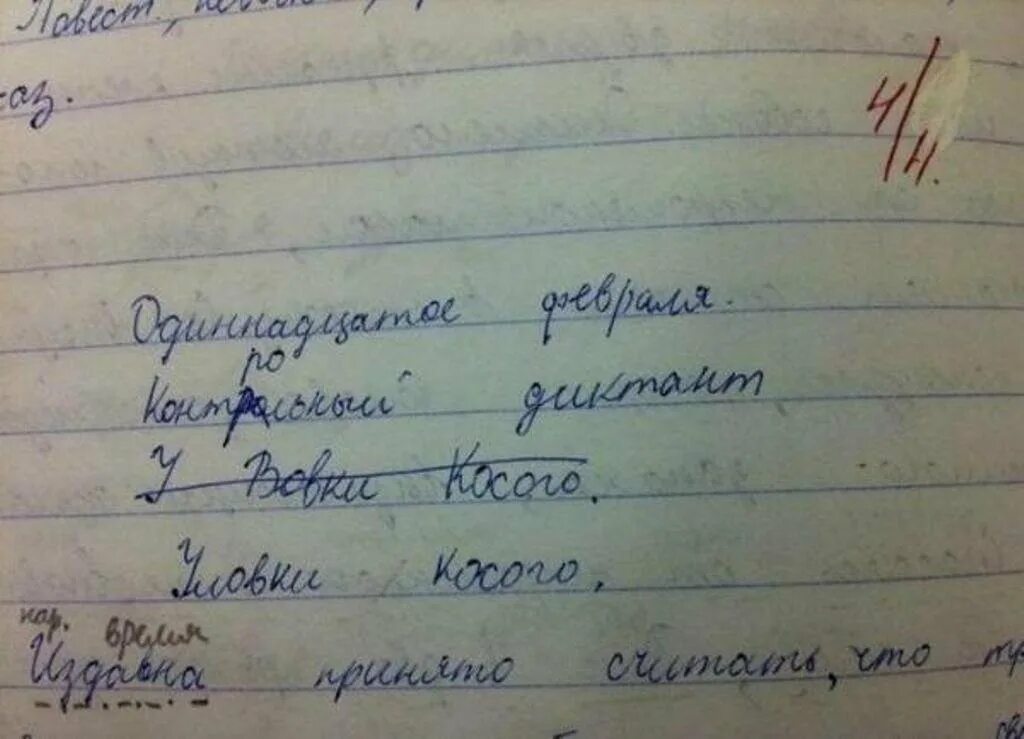 Повест.,
каз.
4/4.
Одиннадцатое февраля.
ро
Контрольный диктант
У Вовки Косого.
Уловки косого.
нар. время
Издавна принято считать, что тр